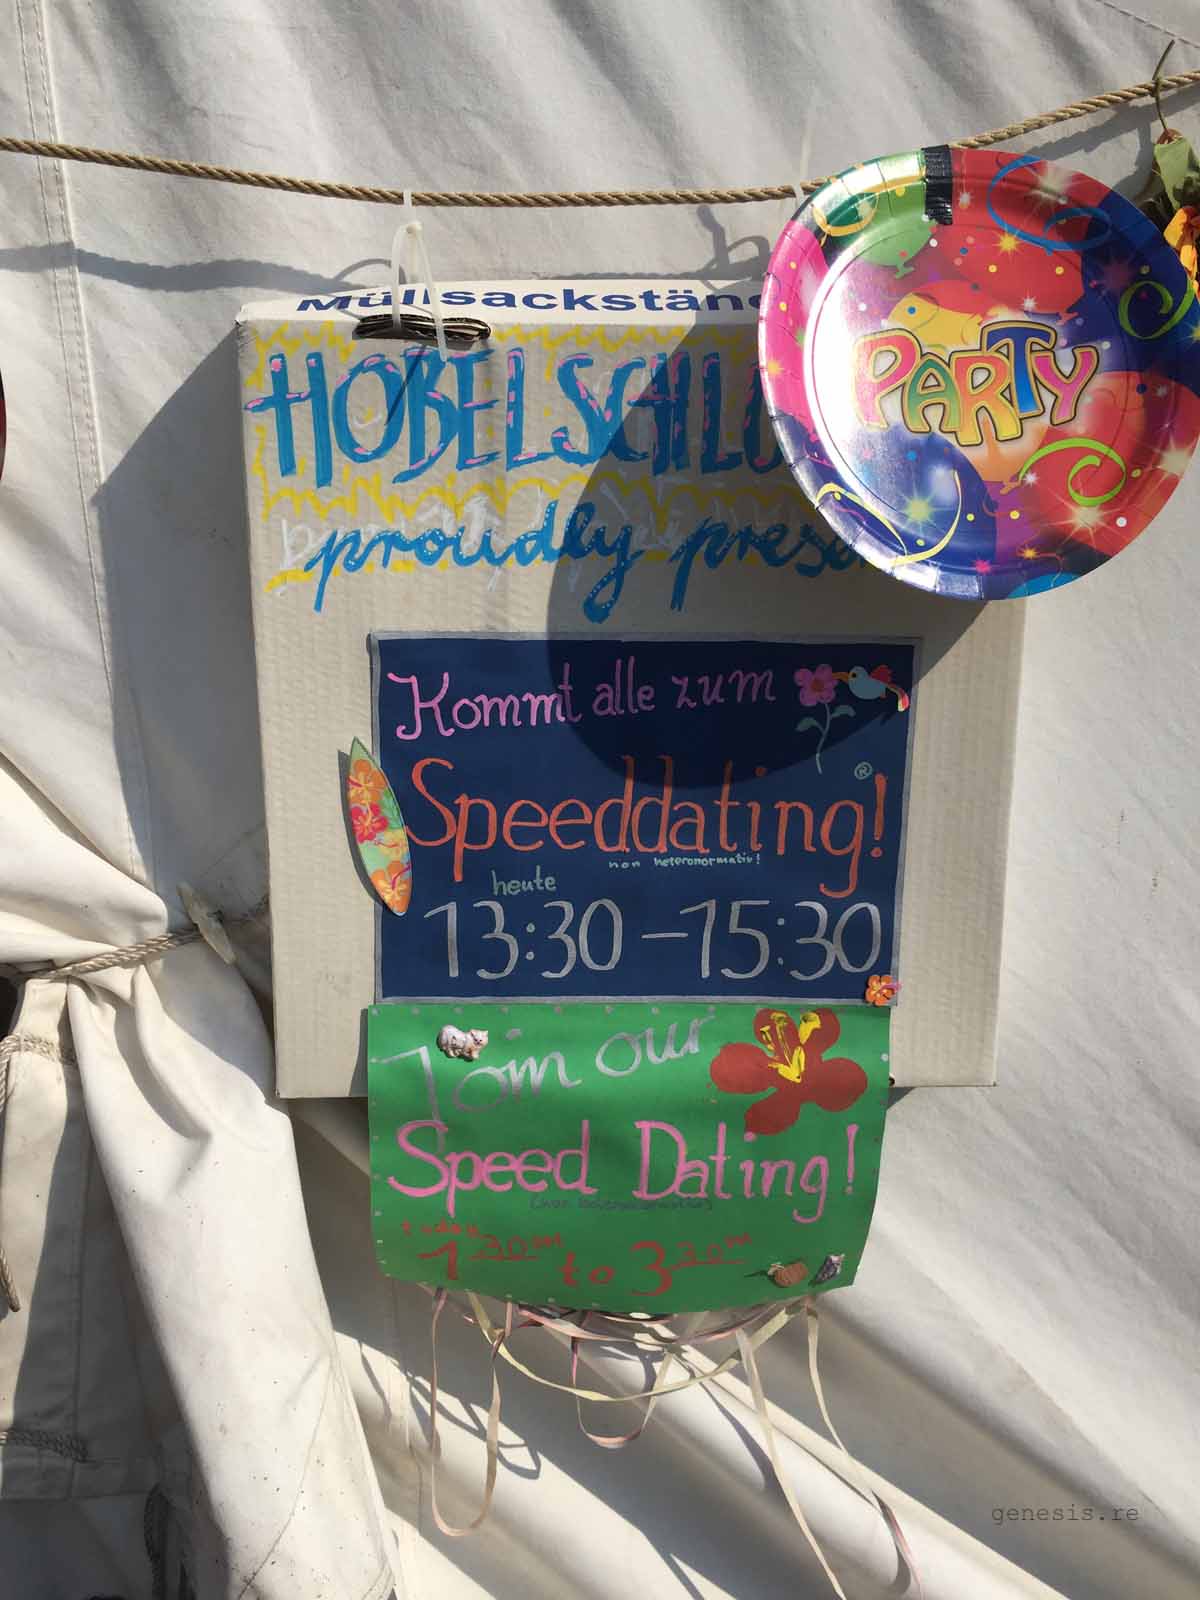 Müllsackstän
HOBELSCHLU
proudly prese
PARTY
Kommt alle zum
Speeddating! ®
non heteronormativ!
heute
13:30 – 15:30
Join our
Speed Dating!
(non heteronormative)
today
1 30 PM to 3 30 PM
genesis.re